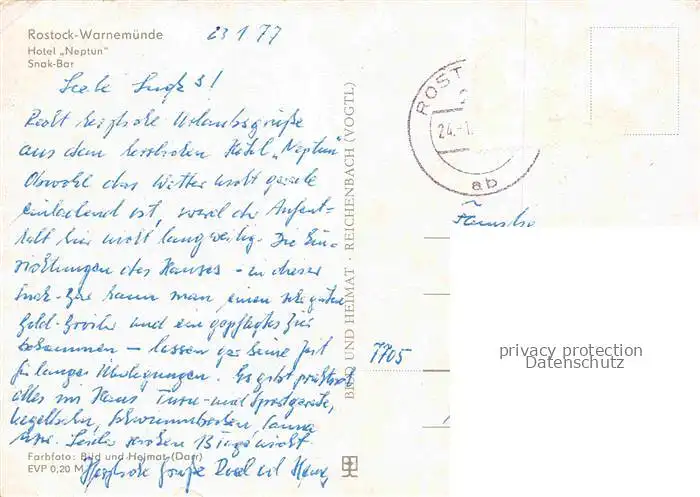 Rostock-Warnemünde
Hotel „Neptun"
Snak-Bar
23 1 77
Liebe
Recht herzliche Urlaubsgrüße
aus dem herrlichen Hotel „Neptun"
Obwohl das Wetter nicht gerade
einladend ist, wird der Aufent-
halt hier nicht langweilig. Die Ein-
richtungen des Hauses - in dieser
Snak-Bar kann man einen sehr guten
Gold-Broiler und ein gepflegtes Bier
bekommen - lassen gar keine Zeit
für lange Überlegungen. Es gibt praktisch
alles im Haus Turn- und Sportgeräte,
Kegelbahn, Schwimmbecken, Sauna
usw. Leider reichen 13 Tage nicht.
Farbfoto: Bild und Heimat (Darr)
EVP 0,20 M
Herzliche Grüße
BILD UND HEIMAT · REICHENBACH (VOGTL)
ROST
24.-1.
ab
7705
privacy protection
Datenschutz